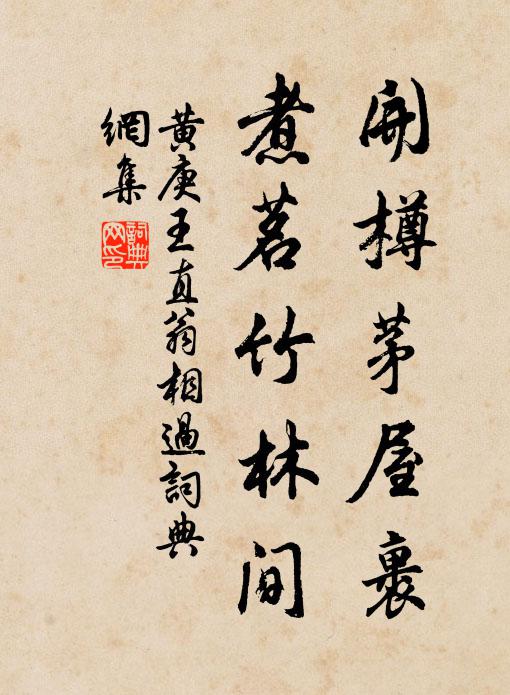 開樽茅屋裏
煮茗竹林間
黄庚王直翁相過詞典
網集
詞典网印